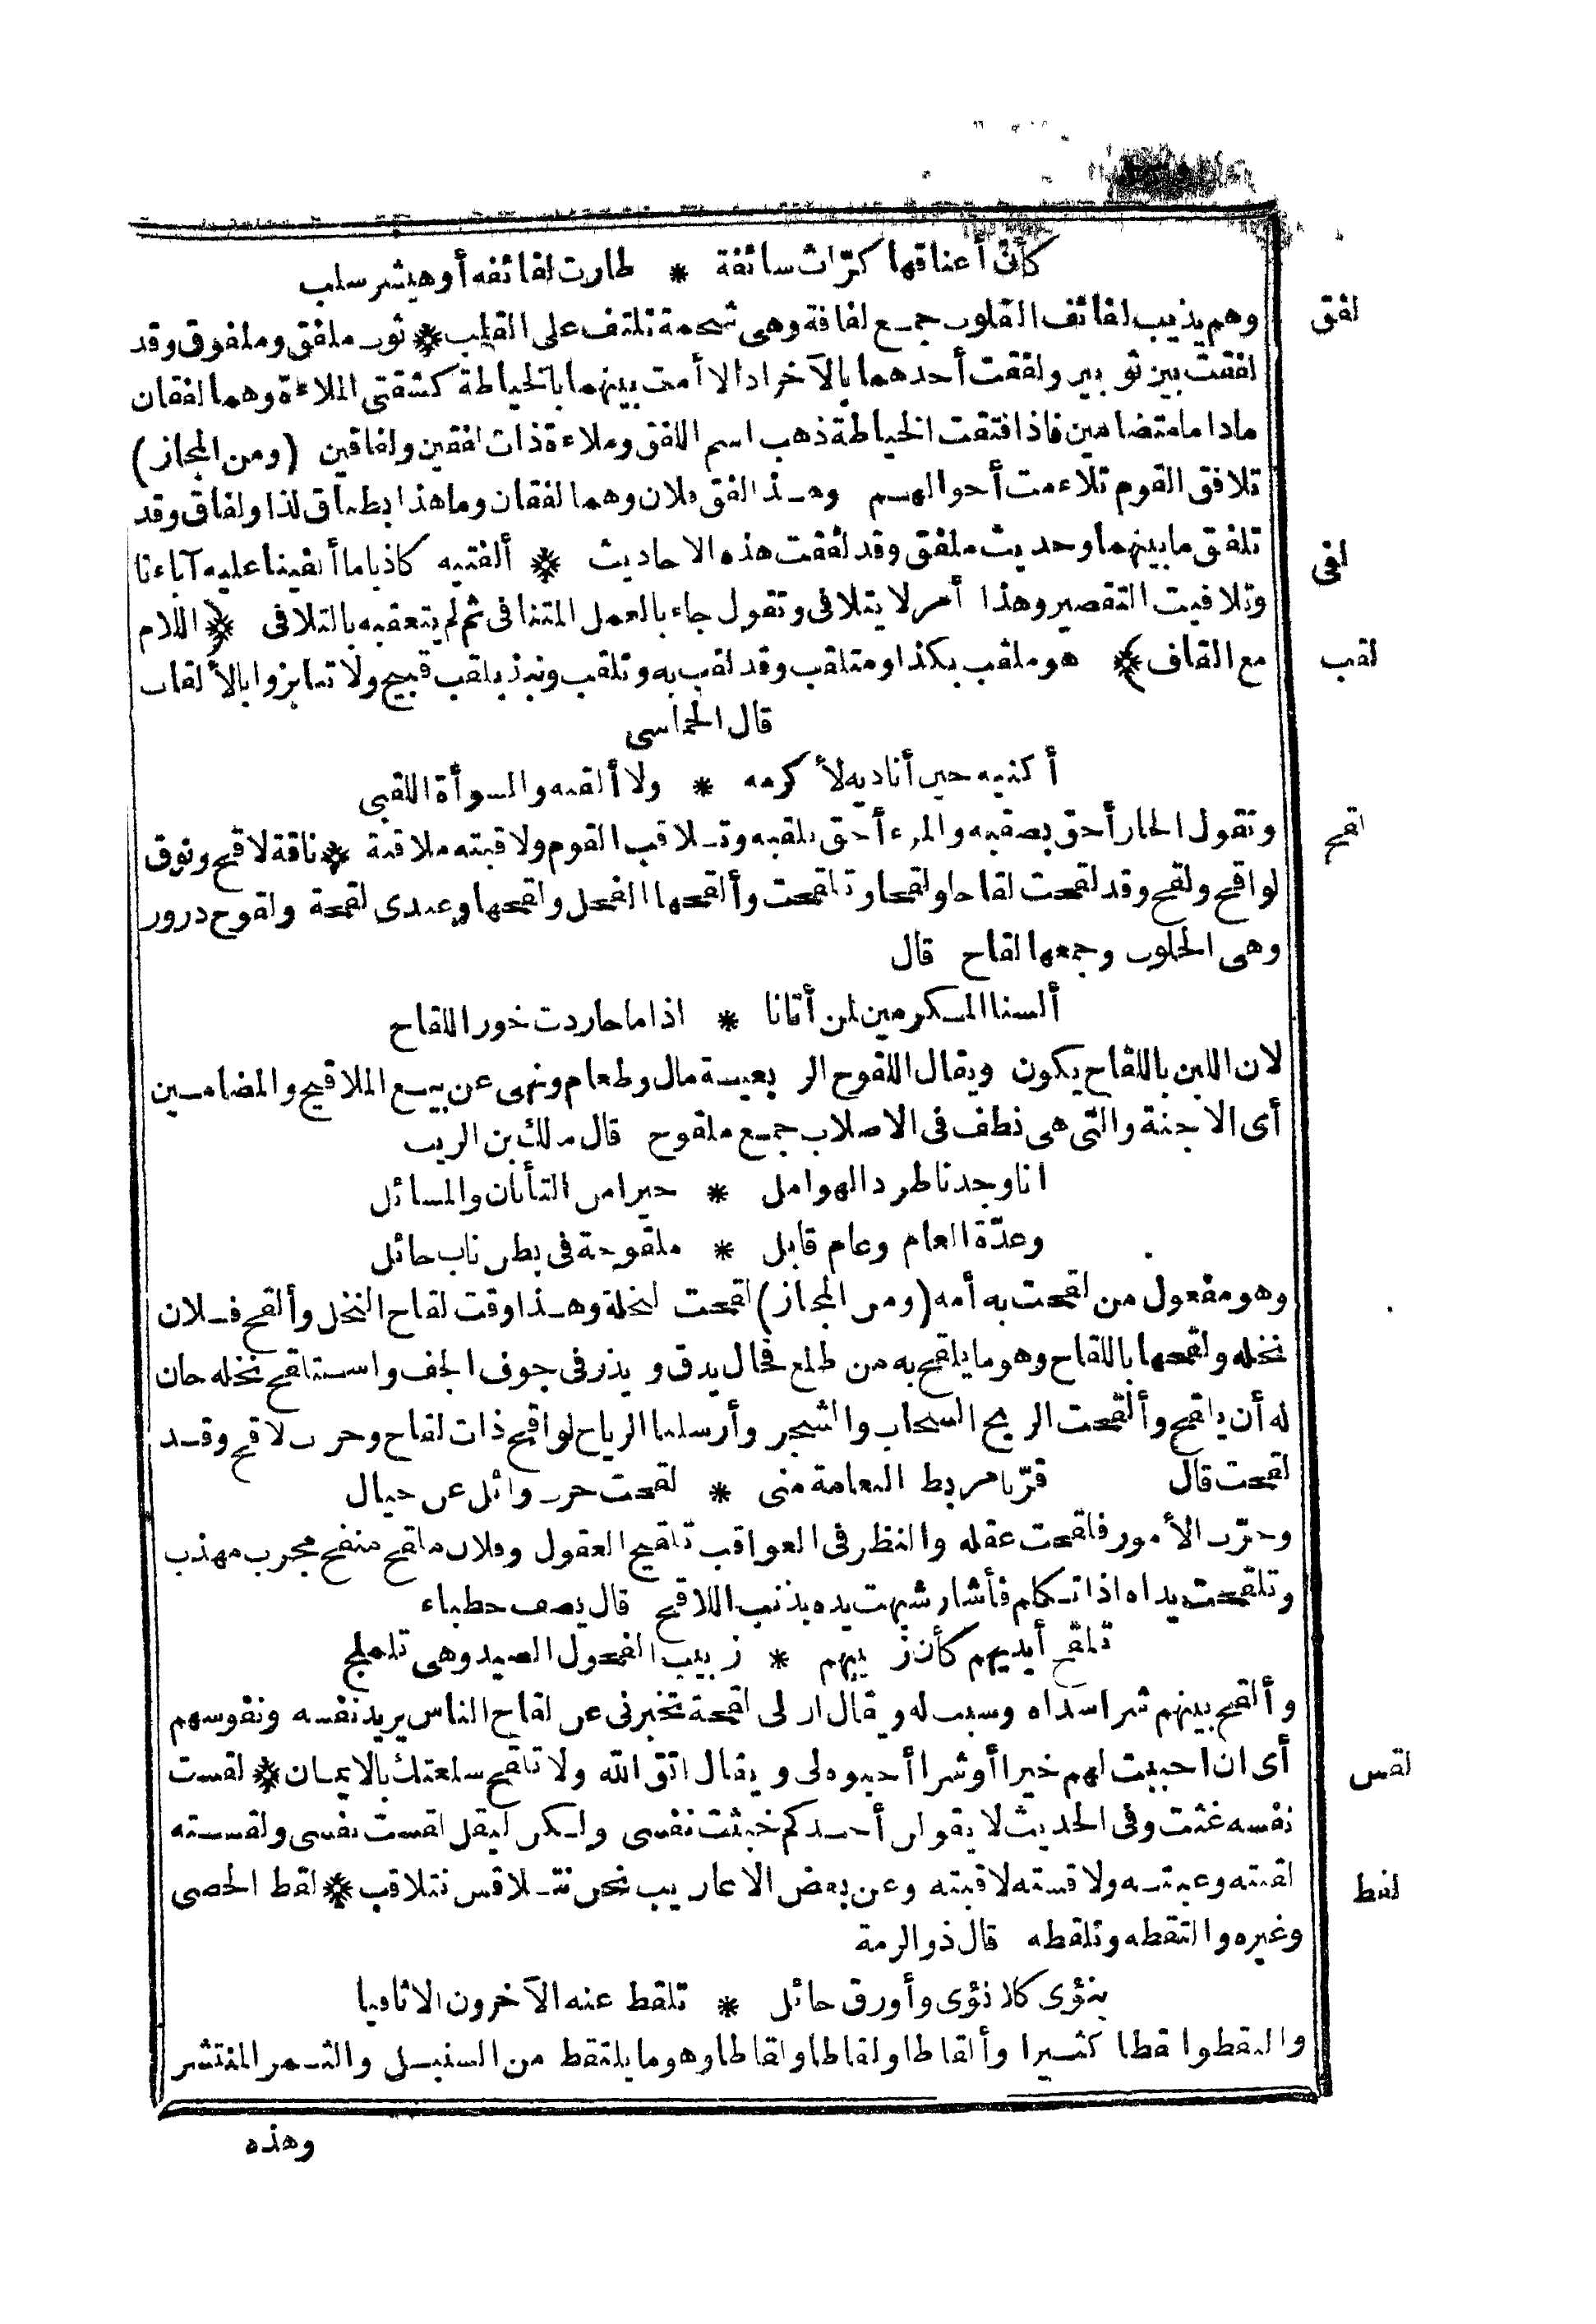 كأن أعناقها كرّاث سائفة * طارت لفائفه أو هيشر سلب
لفق
وهم يذيب لفائف القلوب جمع لفافة وهى شحمة تلتف على القلب * ثوب ملفق وملفوق وقد
لفقت بين ثوبين ولفقت أحدهما بالآخر اذا لاأمت بينهما بالخياطة كشقتى الملاءة وهما لفقان
ماداما متضامين فاذا افتقت الخياطة ذهب اسم اللفق وملاءة ذات لفقين ولفاقين (ومن المجاز)
تلافق القوم تلاءمت أحوالهم وهذا لفق فلان وهما لفقان وما هذا بطباق لذا ولفاق وقد
لفى
تلفق ما بينهما وحديث ملفق وقد لفقت هذه الاحاديث * ألفتيه كاذبا ما ألفينا عليه آباءنا
وتلافيت التقصير وهذا أمر لا يتلافى وتقول جاء بالعمل المتنافى ثم لم يتعقبه بالتلافى ﴿ اللام
لقب
مع القاف ﴾ هو ملقب بكذا ومتلقب وقد لقب به وتلقب ونبذ بلقب قبيح ولا تنابزوا بالألقاب
قال الحماسى
أكنيه حين أناديه لأكرمه * ولا ألقبه والسوأة اللقبى
لقح
وتقول الجار أحق بصقبه والمرء أحق بلقبه وتلاقب القوم ولاقبته ملاقبة * ناقة لاقح ونوق
لواقح ولقح وقد لقحت لقاحا ولقحا وتلقحت وألقحها الفحل ولقحها وعندى لقحة ولقوح درور
وهى الحلوب وجمعها لقاح قال
ألسنا المكرمين لمن أتانا * اذا ما حاردت خور اللقاح
لان اللبن باللقاح يكون ويقال اللقوح الربعية مال وطعام ونهى عن بيع الملاقيح والمضامين
أى الاجنة والتى هى نطف فى الاصلاب جمع ملقوح قال مالك بن الريب
انا وجدنا طرد الهوامل * خيرا من التأنان والمسائل
وعدّة العام وعام قابل * ملقوحة فى بطن ناب حائل
وهو مفعول من لقحت به أمه (ومن المجاز) لقحت النخلة وهذا وقت لقاح النخل وألقح فلان
نخله ولقحها باللقاح وهو ما يلقح به من طلع فحال يدق ويذر فى جوف الجف واستلقح نخله حان
له أن يلقح وألقحت الريح السحاب والشجر وأرسلنا الرياح لواقح ذات لقاح وحرب لاقح وقد
لقحت قال قرّبا مربط النعامة منى * لقحت حرب وائل عن حيال
وجرّب الأمور فلقحت عقله والنظر فى العواقب تلقيح العقول وفلان ملقح منقح مجرب مهذب
وتلقحت يداه اذا تكلم فأشار شبهت يده بذنب اللاقح قال يصف خطباء
تلقح أيديهم كأن زبيبهم * زبيب الفحول الصيد وهى تلمج
وألقح بينهم شرا سداه وسبب له ويقال ان لى لقحة تخبرنى عن لقاح الناس يريد نفسه ونفوسهم
لقس
أى ان أحببت لهم خيرا أو شرا أحبوه لى ويقال اتق الله ولا تلقح سلعتك بالايمان * لقست
نفسه غثت وفى الحديث لا يقولن أحدكم خبثت نفسى ولكن ليقل لقست نفسى ولقسته
لقط
لقبته وعبته ولاقسته لاقبته وعن بعض الاعاريب نحن نتلاقس نتلاقب * لقط الحصى
وغيره والتقطه وتلقطه قال ذو الرمة
بنؤى كلا نؤى وأورق حائل * تلقط عنه الآخرون الاثافيا
والتقطوا لقطا كثيرا وألقاطا ولقاطا ولقاطا وهو ما يلتقط من السنبل والتمر المنتشر
وهذه